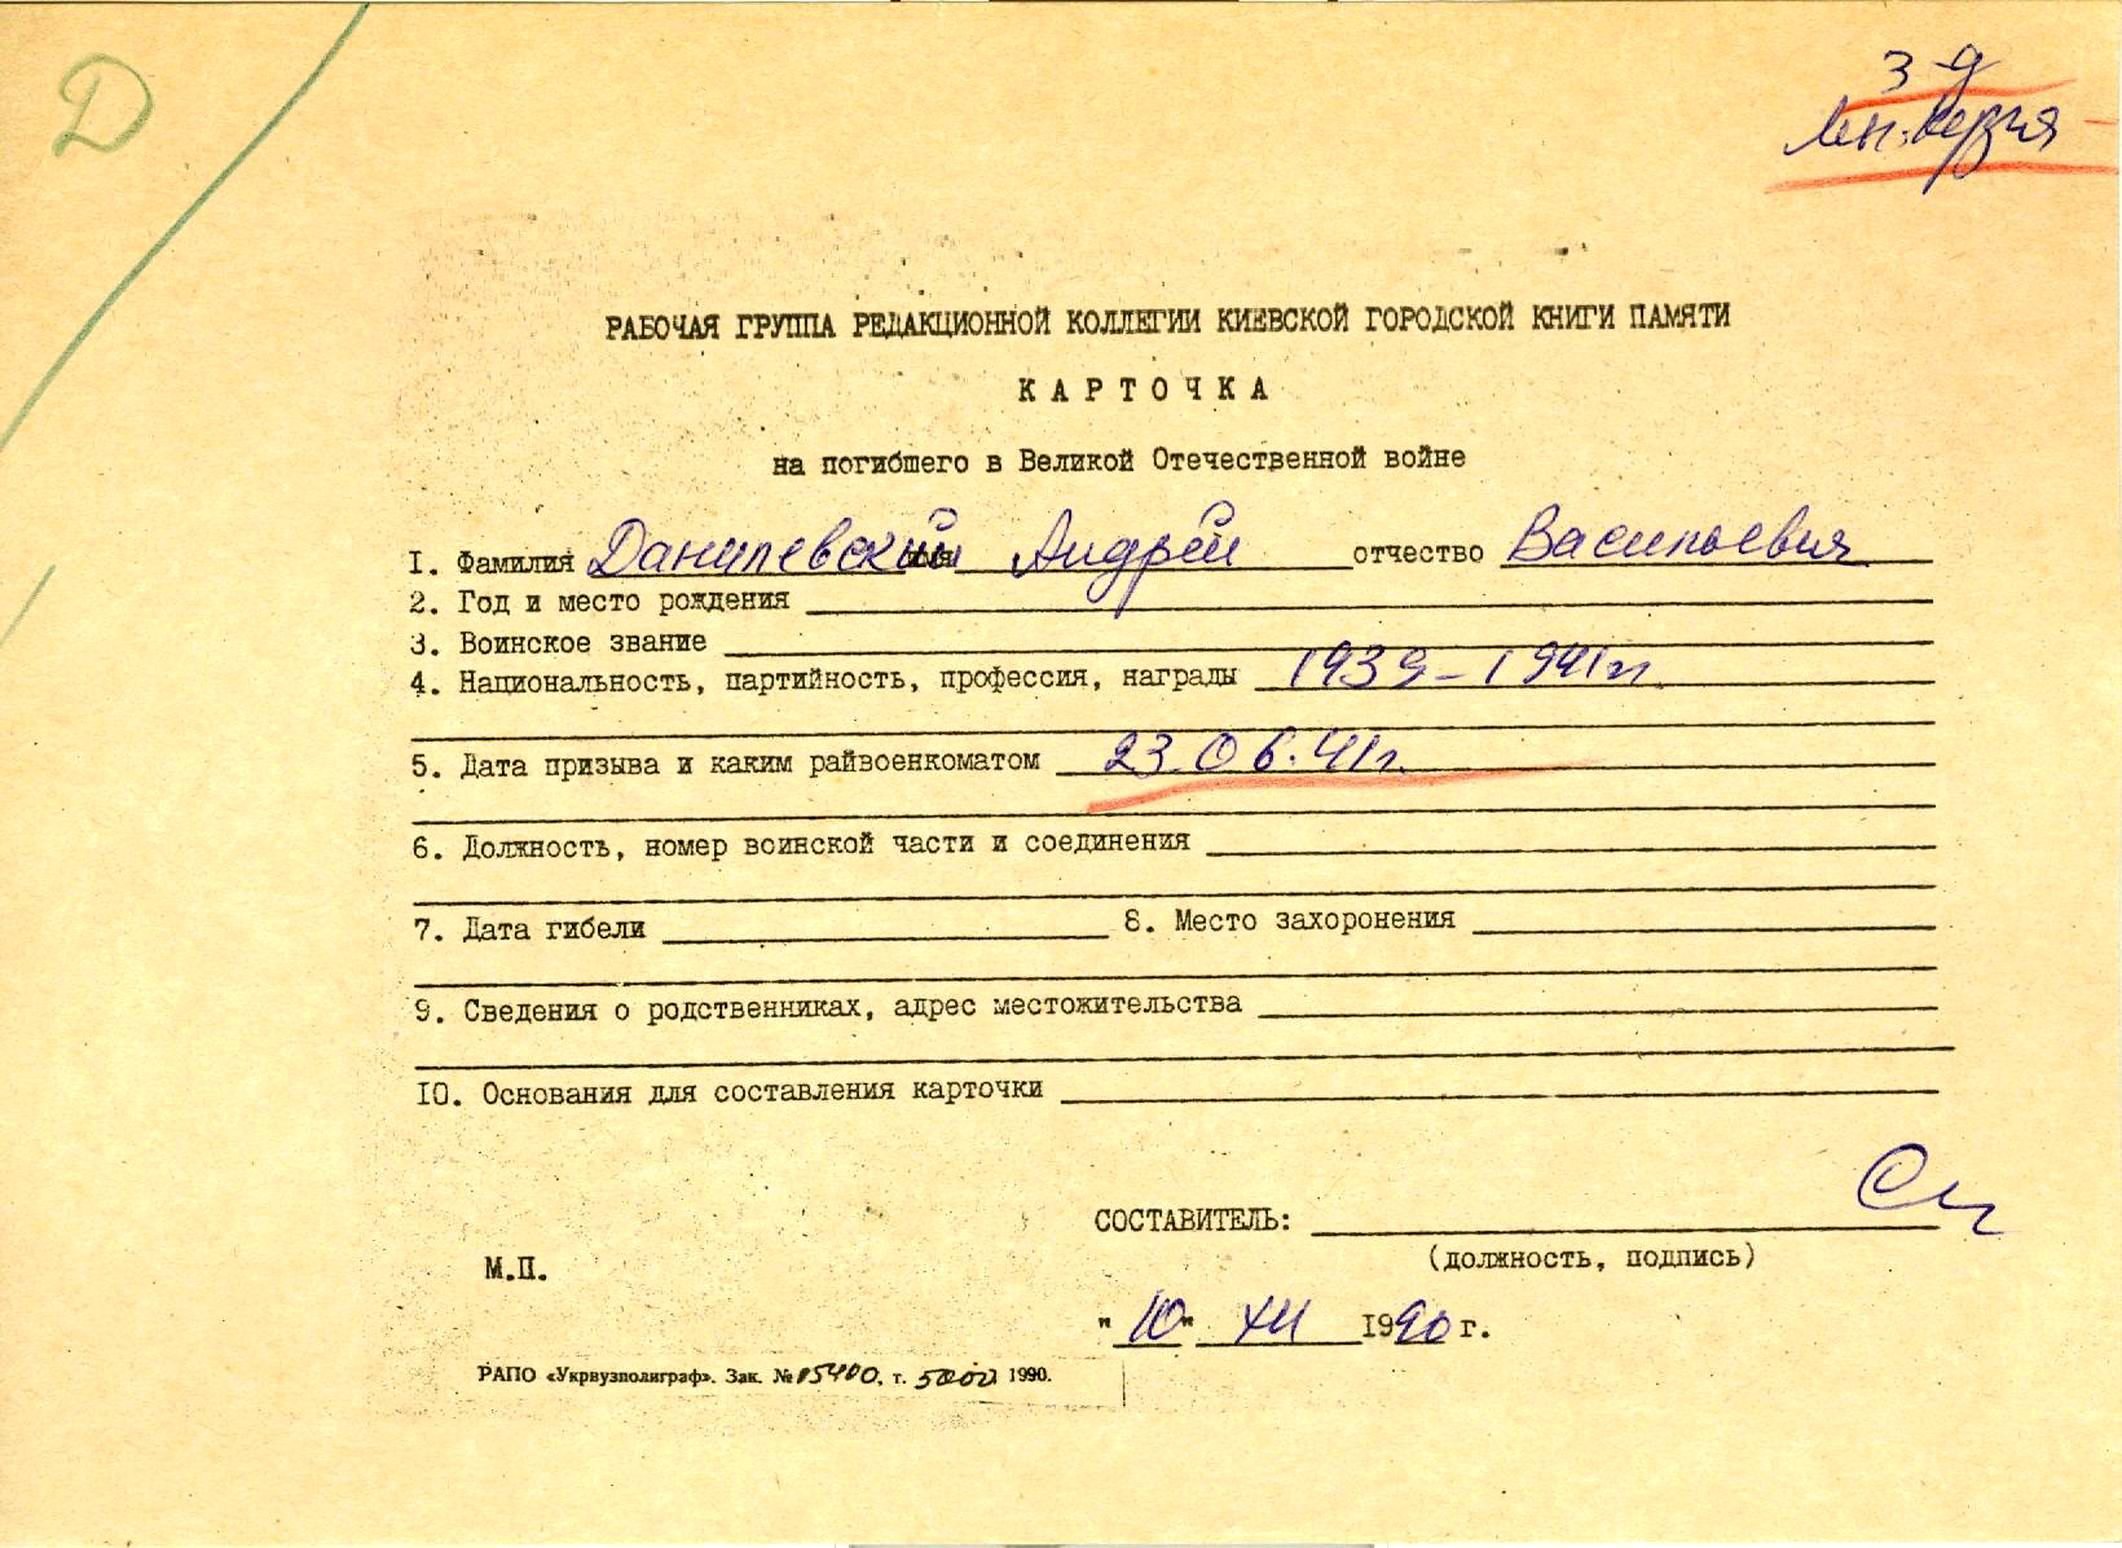 Д
З-д
Лен. Кузня
РАБОЧАЯ ГРУППА РЕДАКЦИОННОЙ КОЛЛЕГИИ КИЕВСКОЙ ГОРОДСКОЙ КНИГИ ПАМЯТИ
КАРТОЧКА
на погибшего в Великой Отечественной войне
1. Фамилия Данилевский имя Андрей отчество Васильевич
2. Год и место рождения
3. Воинское звание
4. Национальность, партийность, профессия, награды 1939-1941гг.
5. Дата призыва и каким райвоенкоматом 23.06.41г.
6. Должность, номер воинской части и соединения
7. Дата гибели 8. Место захоронения
9. Сведения о родственниках, адрес местожительства
10. Основания для составления карточки
СОСТАВИТЕЛЬ:
(должность, подпись)
М.П.
"10" XII 1990 г.
РАПО «Укрвузполиграф». Зак. № 05400, т. 5000 1990.